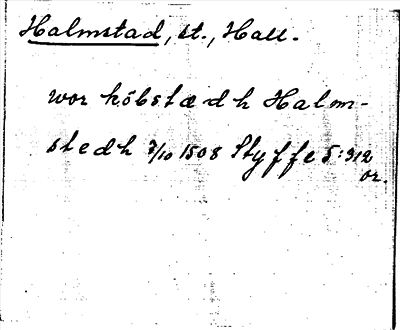 Halmstad, st., Hall.
wor köbstædh Halm-
stedh 7/10 1508 Styffe 5:312
or.